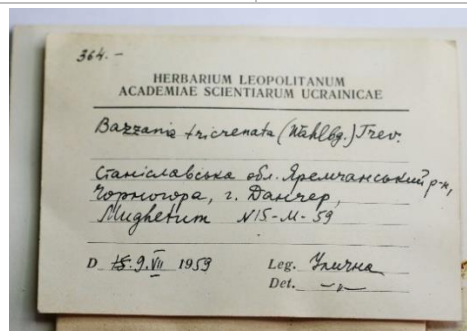 364.-
HERBARIUM LEOPOLITANUM
ACADEMIAE SCIENTIARUM UCRAINICAE
Bazzania tricrenata (Wahlbg.) Trev.
Станіславська обл. Яремчанський р-н,
Чорногора, г. Данчер,
Mughetum N15-М-59
D 9.VII 1959 Leg. Улична
Det. -"-